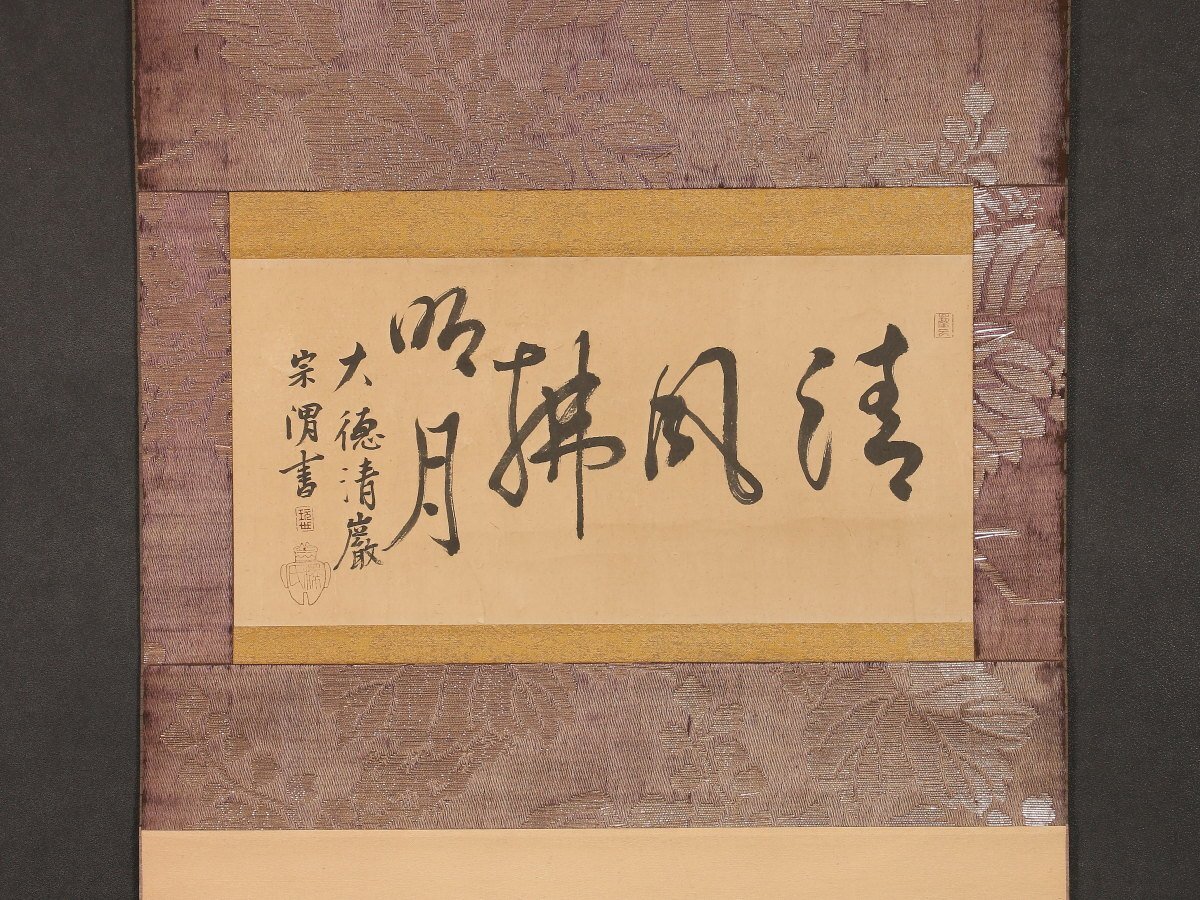 清
風
拂
明月
大德清巖
宗渭書